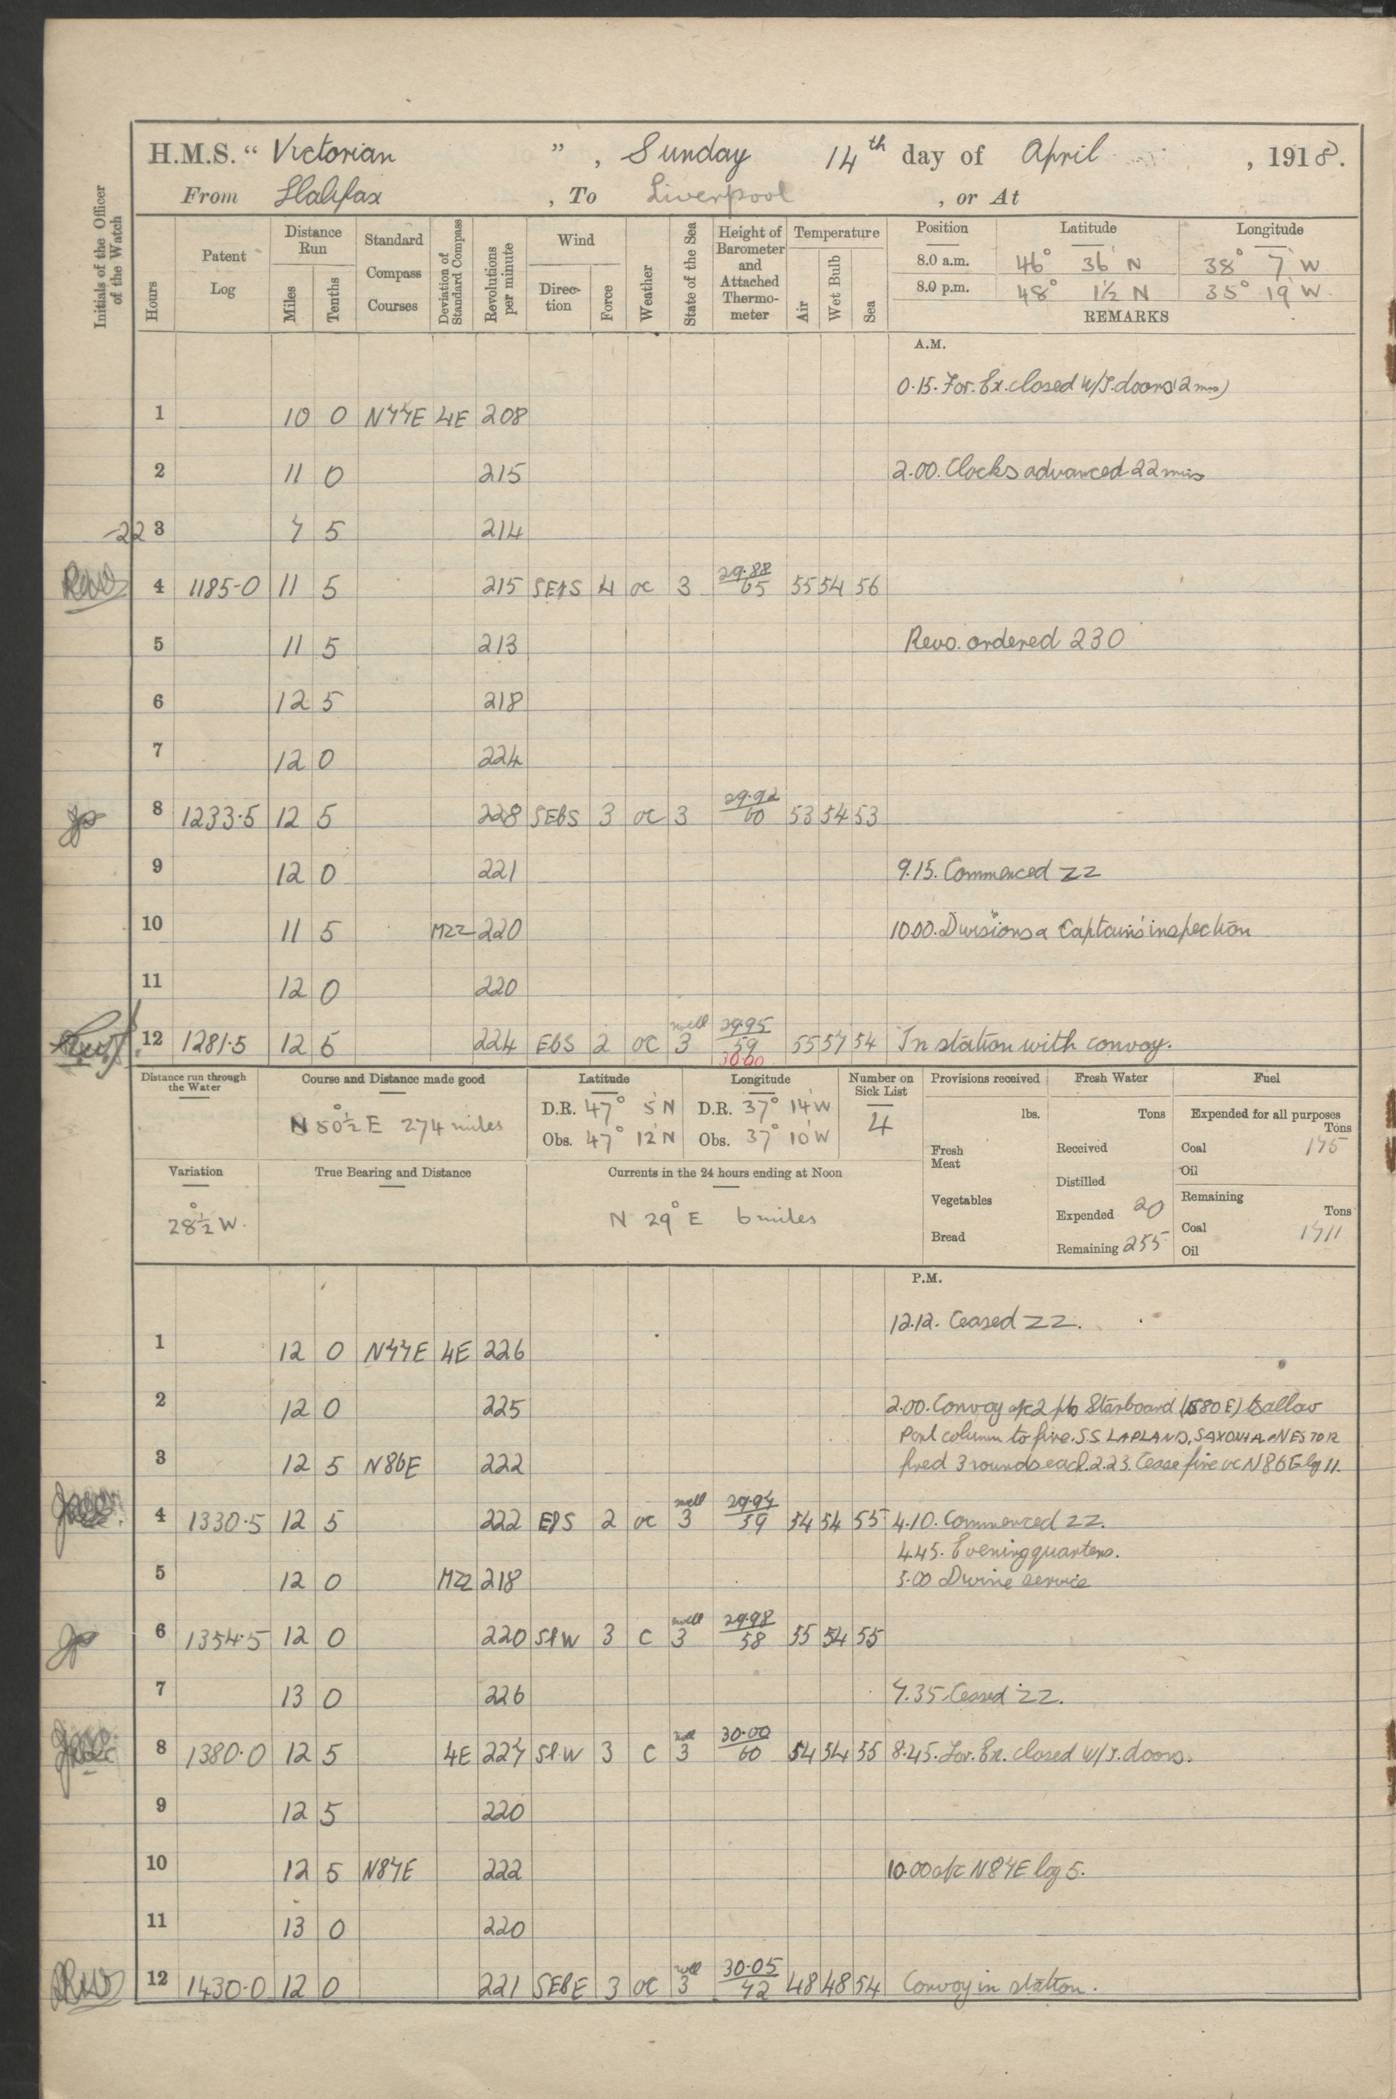 H.M.S. “ Victorian ” , Sunday 14th day of April , 1918.
From Halifax , To Liverpool , or At
Initials of the Officer of the Watch
Hours
Patent Log
Distance Run
Miles
Tenths
Standard Compass Courses
Deviation of Standard Compass
Revolutions per minute
Wind
Direction
Force
Weather
State of the Sea
Height of Barometer and Attached Thermometer
Temperature
Air
Wet Bulb
Sea
Position Latitude Longitude
8.0 a.m. 46° 36' N 38° 7' W
8.0 p.m. 48° 1½ N 35° 19' W
REMARKS
A.M.
0.15. For. Ex. closed W/T. doors (2 mins)
1 10 0 N77E 4E 208
2 11 0 215 2.00. Clocks advanced 22 mins
-22 3 7 5 214
4 1185.0 11 5 215 SEbS 4 oc 3 29.88 65 55 54 56
5 11 5 213 Revs. ordered 230
6 12 5 218
7 12 0 224
8 1233.5 12 5 228 SEbS 3 oc 3 29.92 60 53 54 53
9 12 0 221 9.15. Commenced ZZ
10 11 5 MZZ 220 10.00. Divisions & Captain's inspection
11 12 0 220
12 1281.5 12 5 224 EbS 2 oc swell 3 29.95 59 55 57 54 In station with convoy.
30.00
Distance run through the Water
Course and Distance made good
N 80½° E 274 miles
Latitude
D.R. 47° 5' N
Obs. 47° 12' N
Longitude
D.R. 37° 14' W
Obs. 37° 10' W
Number on Sick List
4
Provisions received
lbs.
Fresh Meat
Vegetables
Bread
Fresh Water
Tons
Received
Distilled
Expended 20
Remaining 255
Fuel
Expended for all purposes
Tons
Coal 175
Oil
Remaining
Tons
Coal 1711
Oil
Variation
28½° W.
True Bearing and Distance
Currents in the 24 hours ending at Noon
N 29° E 6 miles
P.M.
12.12. Ceased ZZ.
1 12 0 N77E 4E 226
2 12 0 225 2.00. Convoy a/c 2 pts Starboard (S80E) to allow
Port column to fire. SS LAPLAND, SAXONIA & NESTOR
3 12 5 N86E 222 fired 3 rounds each. 2.23. Cease fire a/c N86E log 11.
4 1330.5 12 5 222 EbS 2 oc swell 3 29.97 59 54 54 55 4.10. Commenced ZZ.
4.45. Evening quarters.
5 12 0 MZZ 218 5.00 Divine service
6 1354.5 12 0 220 SbW 3 c swell 3 29.98 58 55 54 55
7 13 0 226 7.35 Ceased ZZ.
8 1380.0 12 5 4E 227 SbW 3 c swell 3 30.00 60 54 54 55 8.45. For. Ex. closed W/T. doors.
9 12 5 220
10 12 5 N87E 222 10.00 a/c N87E log 5.
11 13 0 220
12 1430.0 12 0 221 SEBE 3 oc swell 3 30.05 72 48 48 54 Convoy in station.